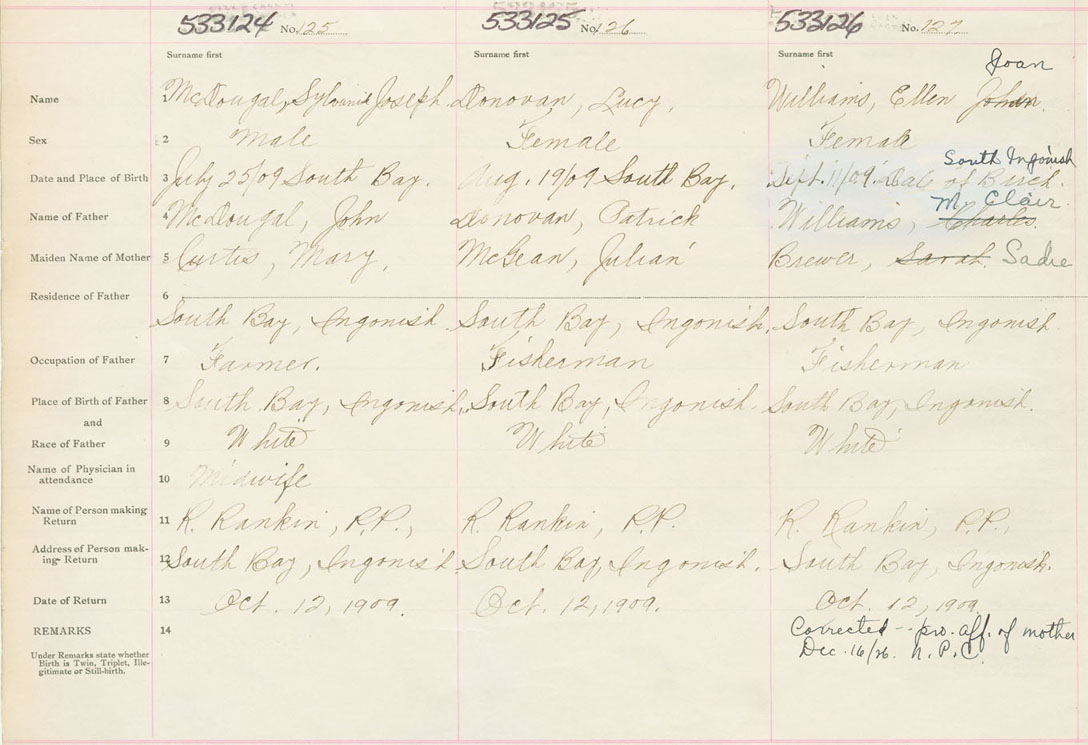 533124 No. 125 533125 No. 126 533126 No. 127
Surname first Surname first Surname first
Joan
Name 1 McDougal, Sylvanis Joseph. Donovan, Lucy, Williams, Ellen Johan.
Sex 2 Male Female Female
South Ingonish
Date and Place of Birth 3 July 25/09 South Bay. Aug. 19/09 South Bay. Sept. 11/09 Date of Birth.
Mc Clair.
Name of Father 4 McDougal, John Donovan, Patrick Williams, Charles.
Maiden Name of Mother 5 Curtis, Mary, McGean, Julian Brewer, Sarah. Sadie
Residence of Father 6
South Bay, Ingonish. South Bay, Ingonish. South Bay, Ingonish.
Occupation of Father 7 Farmer. Fisherman Fisherman
Place of Birth of Father 8 South Bay, Ingonish. South Bay, Ingonish. South Bay, Ingonish.
and
Race of Father 9 White White White
Name of Physician in
attendance 10 Midwife
Name of Person making
Return 11 R. Rankin, P.P., R. Rankin, P.P. R. Rankin, P.P.,
Address of Person mak-
ing Return 12 South Bay, Ingonish. South Bay, Ingonish. South Bay, Ingonish.
Date of Return 13 Oct. 12, 1909. Oct. 12, 1909. Oct. 12, 1909.
REMARKS 14 Corrected -- pro. aff. of mother
Dec. 16/26. N.P.C.
Under Remarks state whether
Birth is Twin, Triplet, Ille-
gitimate or Still-birth.